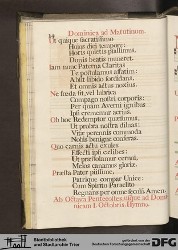 Dominica ad Matutinum.
Ut quisque sacratissimo
Huius diei tempore:
Horis quietis psallimus,
Donis beatis muneret.
Iam nunc Paterna Claritas
Te postulamus affatim:
Absit libido sordidans,
Et omnis actus noxius.
Ne foeda sit, vel lubrica
Compago nostri corporis:
Per quam Averni ignibus
Ipsi crememur acrius.
Ob hoc Redemptor quaesumus,
Ut probra nostra diluas:
Vitae perennis commoda
Nobis benigne conferas.
Quo carnis actu exules
Effecti ipsi caelibes:
Ut praestolamur cernui,
Melos canamus gloriae.
Praesta Pater piissime,
Patrique compar Unice:
Cum Spiritu Paraclito
Regnans per omne saeculum Amen.
Ab Octava Pentecostes usque ad
Stadtbibliothek
und Stadtarchiv Trier
DFG